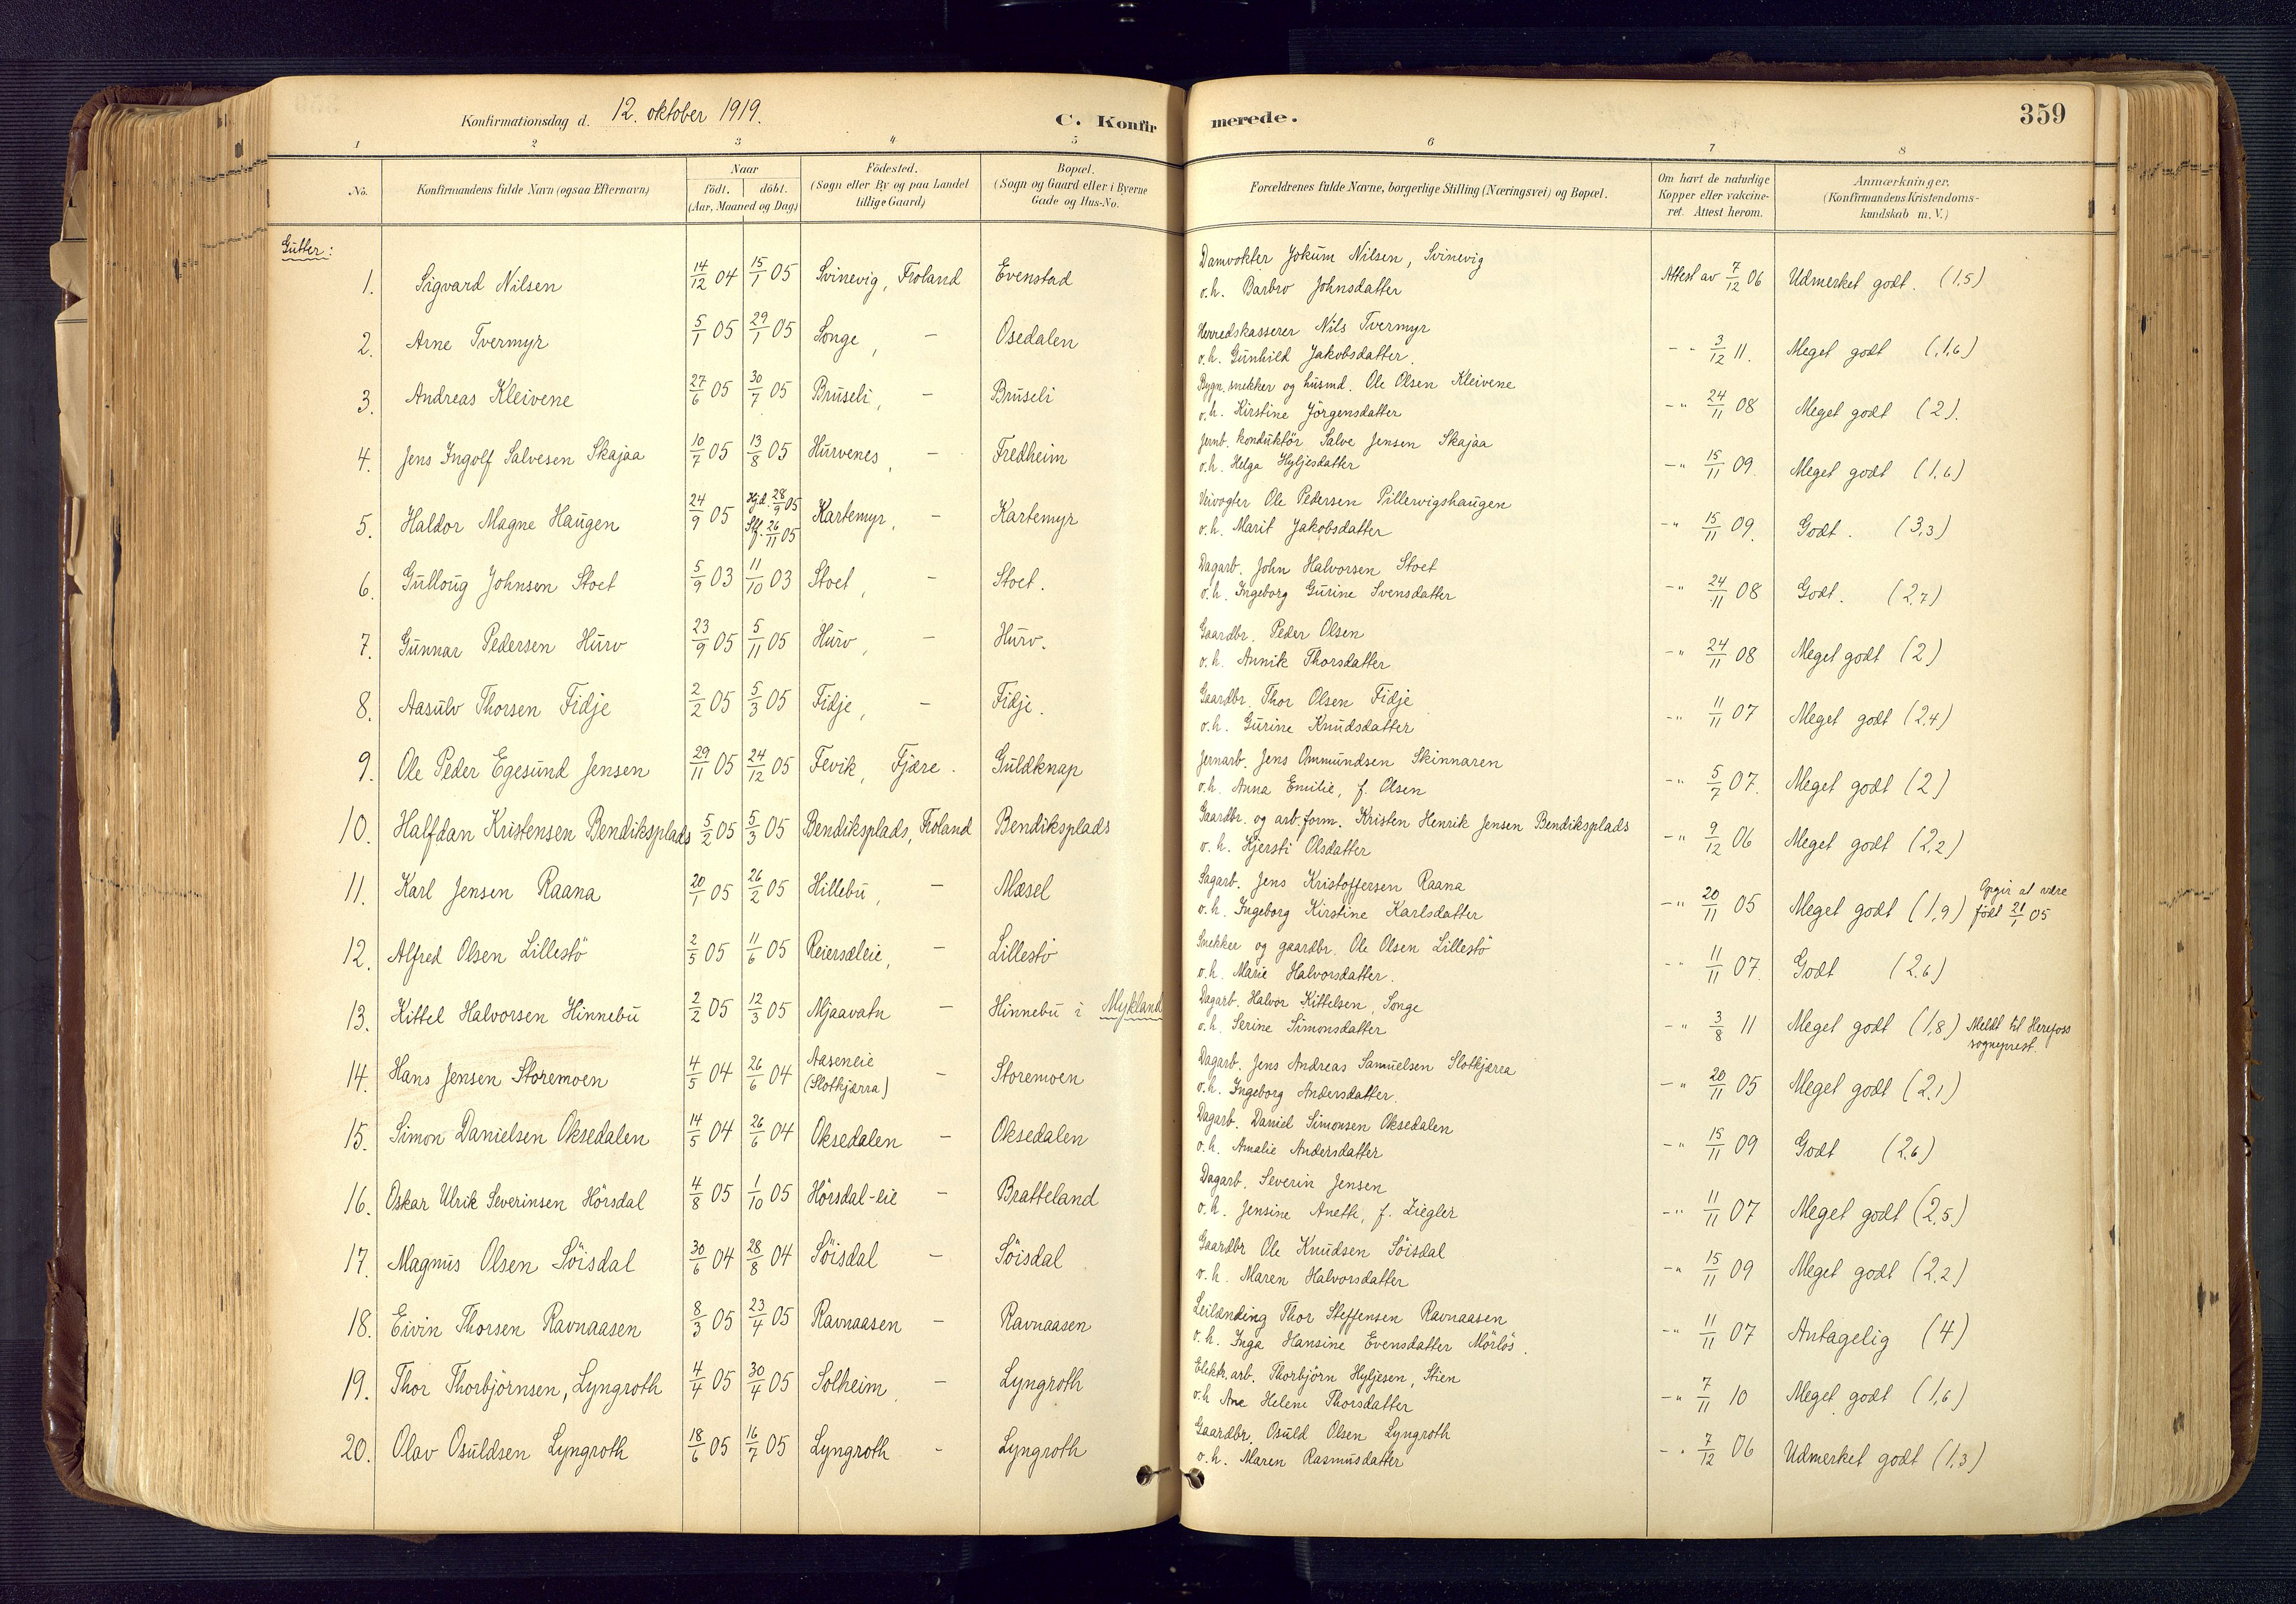 Konfirmationsdag d. 12. oktober 1919.
C. Konfirmerede.
359
1 2 3 4 5 6 7 8
No.
Konfirmandens fulde Navn (ogsaa Efternavn)
Naar
født. døbt.
(Aar, Maaned og Dag)
Födested.
(Sogn eller By og paa Landet
tillige Gaard)
Bopæl.
(Sogn og Gaard eller i Byerne
Gade og Hus-No.
Forældrenes fulde Navne, borgerlige Stilling (Næringsvei) og Bopæl.
Om havt de naturlige
Kopper eller vakcine-
ret. Attest herom.
Anmærkninger.
(Konfirmandens Kristendoms-
kundskab m. V.)
Gutter:
1. Sigvard Nilsen 14/12 04 15/1 05 Svinevig, Froland Evenstad
Damvokter Jokum Nilsen, Svinevig
o.h. Barbro Johnsdatter
Attest av 7/12 06 Udmerket godt. (1,5)
2. Arne Tvermyr 5/1 05 29/1 05 Songe, – Osedalen
Herredskasserer Nils Tvermyr
o.h. Gunhild Jakobsdatter.
- " 3/12 11. Meget godt (1,6)
3. Andreas Kleivene 27/6 05 30/7 05 Bruseli, – Bruseli
Bygn. snekker og husmd. Ole Olsen Kleivene
o.h. Kirstine Jörgensdatter
- " 24/11 08 Meget godt (2).
4. Jens Ingolf Salvesen Skajaa 10/7 05 13/8 05 Hurvenes, – Fredheim
Jernb. konduktör Salve Jensen Skajaa
o.h. Helga Hyljesdatter
- " 15/11 09. Meget godt (1,6)
5. Haldor Magne Haugen 24/9 05 Hjd. 28/9 05 Stf. 26/11 05 Kartemyr, – Kartemyr
Veivogter Ole Pedersen Pillervigshaugen
o.h. Marit Jakobsdatter
- " 15/11 09. Godt. (3,3)
6. Gulloug Johnsen Stoet 5/9 03 11/10 03 Stoet, – Stoet.
Dagarb. John Halvorsen Stoet
o.h. Ingeborg Gurine Svensdatter
- " 24/11 08 Godt. (2,7)
7. Gunnar Pedersen Hurv 23/9 05 5/11 05 Hurv, – Hurv.
Gaardbr. Peder Olsen
o.h. Annik Thorsdatter
- " 24/11 08 Meget godt (2)
8. Aasulv Thorsen Fidje 2/2 05 5/3 05 Fidje, – Fidje.
Gaardbr. Thor Olsen Fidje
o.h. Gurine Knudsdatter
- " 11/11 07 Meget godt (2,4)
9. Ole Peder Egesund Jensen 29/11 05 24/12 05 Fevik, Fjære. Guldknap
Jernarb. Jens Ommundsen Skinnaren
o.h. Anna Emilie, f. Olsen
- " 5/7 07. Meget godt (2)
10. Halfdan Kristensen Bendiksplads 5/2 05 5/3 05 Bendiksplads, Froland Bendiksplads
Gaardbr. og arb.form. Kristen Henrik Jensen Bendiksplads
o.h. Kjersti Olsdatter
- " 9/12 06 Meget godt (2,2)
11. Karl Jensen Raana 20/1 05 26/2 05 Hillebu, – Mæsel
Sagarb. Jens Kristoffersen Raana
o.h. Ingeborg Kirstine Karlsdatter
- " 20/11 05 Meget godt (1,9) Opgir at være
født 21/1 05
12. Alfred Olsen Lillestö 2/5 05 11/6 05 Reierseleie, – Lillestö
Snekker og gaardbr. Ole Olsen Lillestö
o.h. Marie Halvorsdatter.
- " 11/11 07. Godt (2,6)
13. Kittel Halvorsen Hinnebu 2/2 05 12/3 05 Mjaavatn – Hinnebu i Mykland
Dagarb. Halvor Kittelsen, Songe
o.h. Serine Simonsdatter
- " 3/8 11 Meget godt (1,8) Meldt til Herefoss
sogneprest.
14. Hans Jensen Storemoen 4/5 04 26/6 04 Aaseneie
(Slotkjærra) – Storemoen
Dagarb. Jens Andreas Samuelsen Slotkjærra
o.h. Ingeborg Andersdatter.
- " 20/11 05 Meget godt (2,1)
15. Simon Danielsen Oksedalen 14/5 04 26/6 04 Oksedalen – Oksedalen
Dagarb. Daniel Simonsen Oksedalen
o.h. Amalie Andersdatter
- " 15/11 09 Godt (2,6)
16. Oskar Ulrik Severinsen Hörsdal 4/8 05 1/10 05 Hörsdal-eie – Bratteland
Dagarb. Severin Jensen
o.h. Jensine Anette, f. Ziegler
- " 11/11 07 Meget godt (2,5)
17. Magnus Olsen Söisdal 30/6 04 28/8 04 Söisdal – Söisdal
Gaardbr Ole Knudsen Söisdal
o.h. Maren Halvorsdatter
- " 15/11 09 Meget godt (2,2)
18. Eivin Thorsen Ravnaasen 8/3 05 23/4 05 Ravnaasen – Ravnaasen
Leilænding Thor Steffensen Ravnaasen
o.h. Inga Hansine Evensdatter Mörlös.
- " 11/11 07 Antagelig (4)
19. Thor Thorbjörnsen, Lyngroth 4/4 05 30/4 05 Solheim, – Lyngroth
Elektr. arb. Thorbjörn Hyljesen, Stien
o.h Ane Helene Thorsdatter
- " 7/11 10 Meget godt (1,6)
20. Olav Osuldsen Lyngroth 18/6 05 16/7 05 Lyngroth – Lyngroth
Gaardbr. Osuld Olsen Lyngroth
o.h. Maren Rasmusdatter
- " 7/12 06 Udmerket godt (1,3)